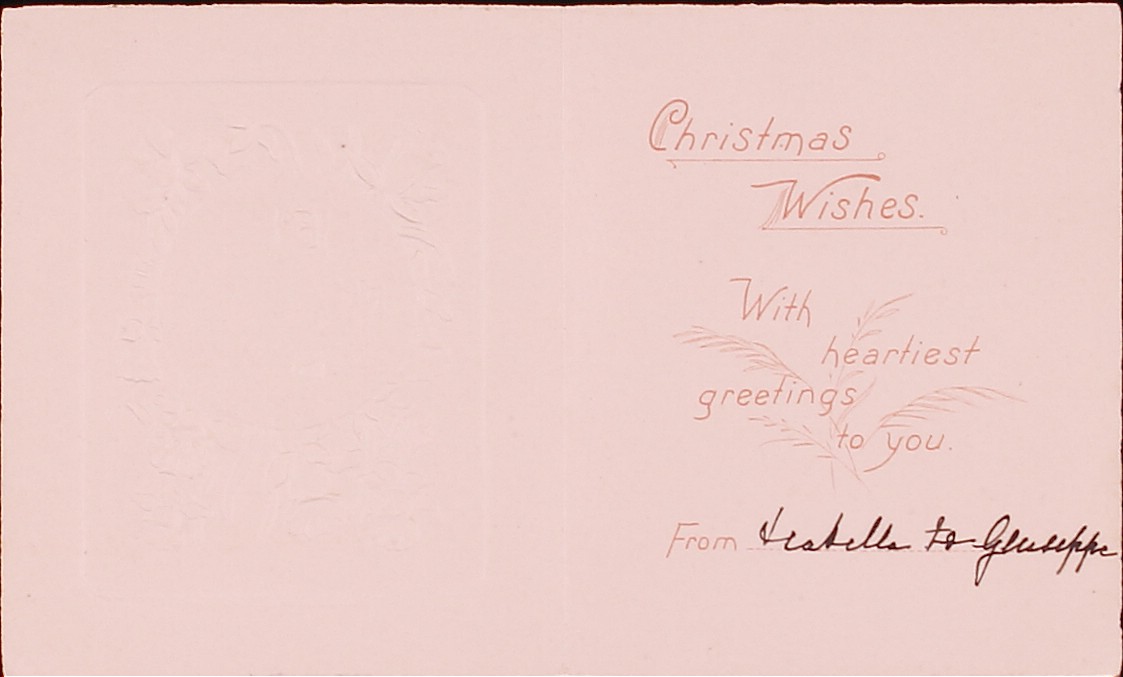 Christmas
Wishes.
With
heartiest
greetings
to you.
From Isabella to Giuseppe